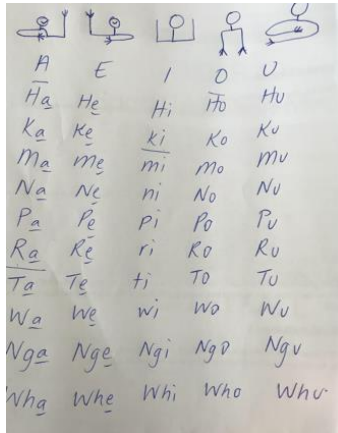 A E I O U
Ha He Hi Ho Hu
Ka Ke Ki Ko Ku
Ma Me mi Mo Mu
Na Ne ni No Nu
Pa Pe Pi Po Pu
Ra Re ri Ro Ru
Ta Te ti To Tu
Wa We wi Wo Wu
Nga Nge Ngi Ngo Ngu
Wha Whe Whi Who Whu